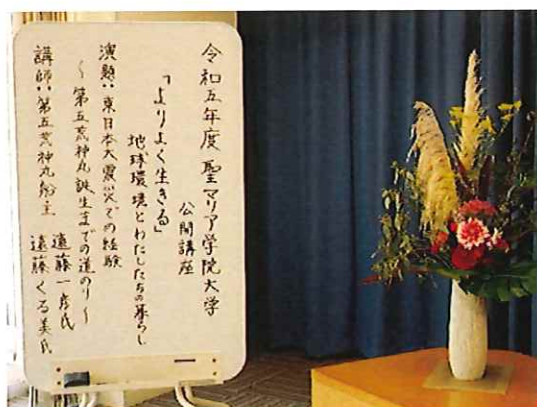 令和五年度 聖マリア学院大学
公開講座
「よりよく生きる」
地球環境とわたしたちの暮らし
演題:東日本大震災での経験
〜第五荒神丸誕生までの道のり〜
講師:第五荒神丸船主
遠藤一彦氏
遠藤くる美氏